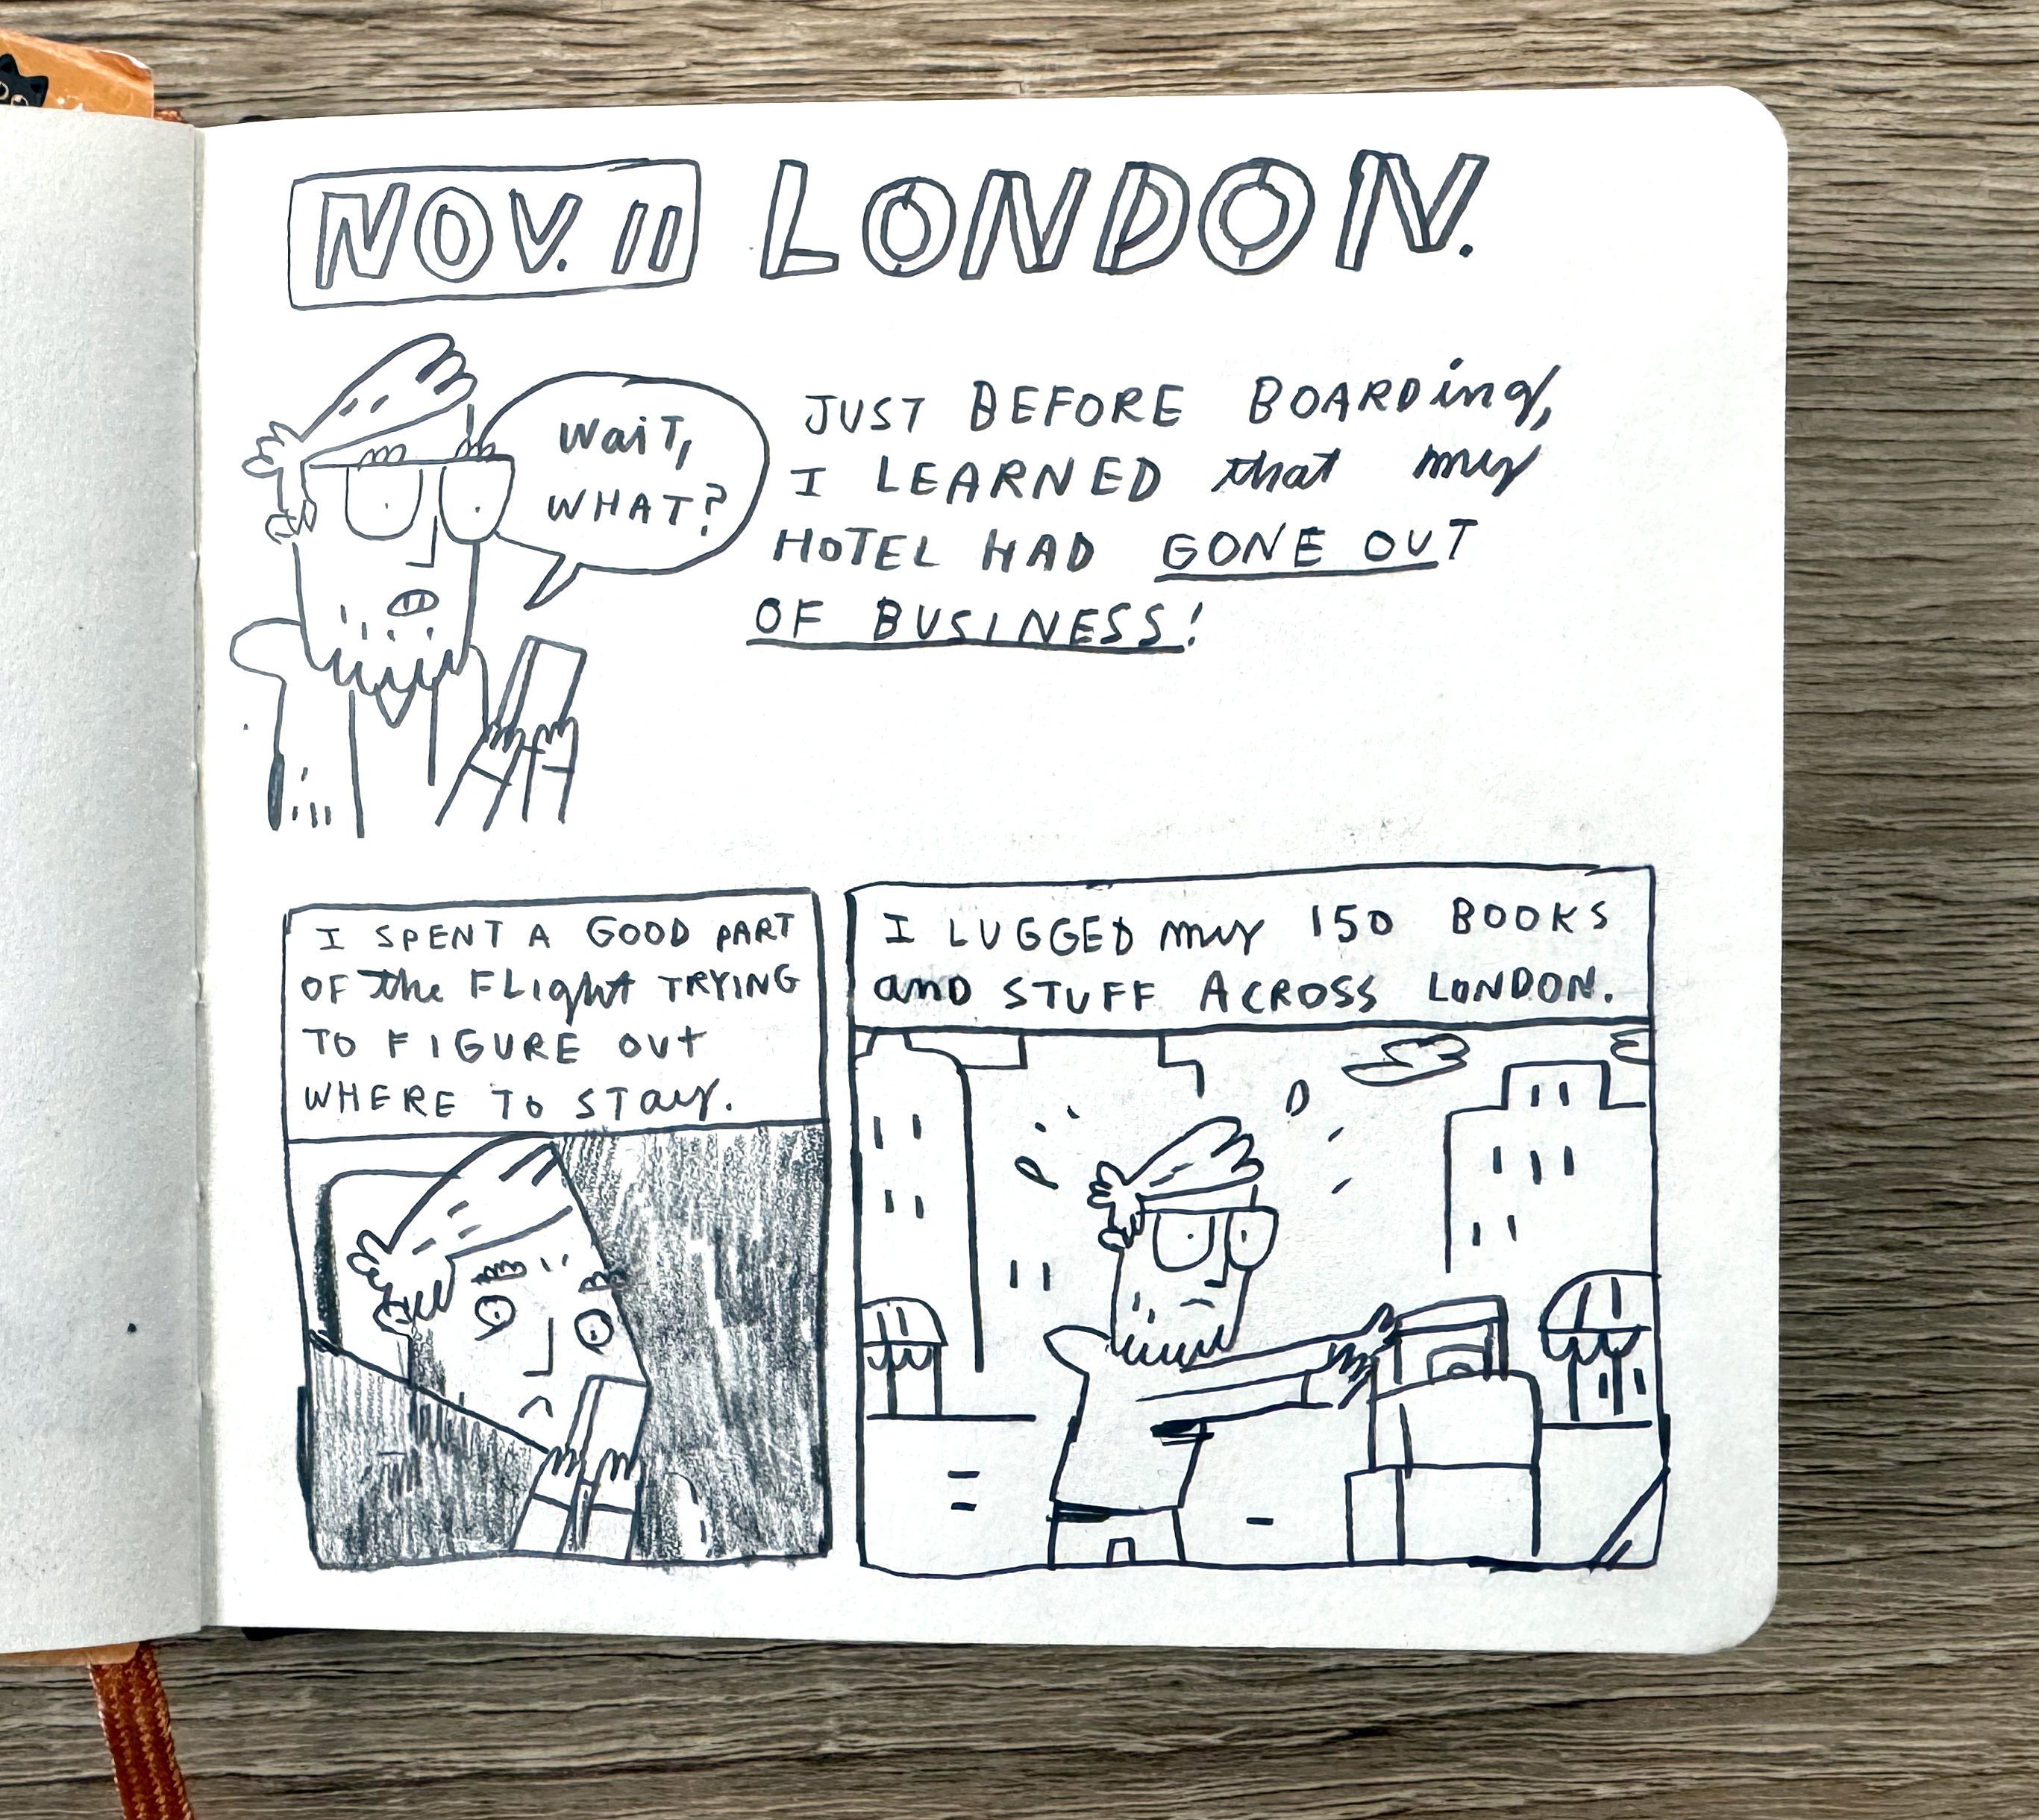 NOV. 11 LONDON.
WaiT,
WHAT?
JUST BEFORE BOARDing,
I LEARNED that my
HOTEL HAD GONE OUT
OF BUSINESS!
I SPENT A GOOD PART
OF the FLight TRYING
TO FIGURE OUt
WHERE TO STay.
I LUGGED my 150 BOOKS
anD STUFF ACROSS LONDON.